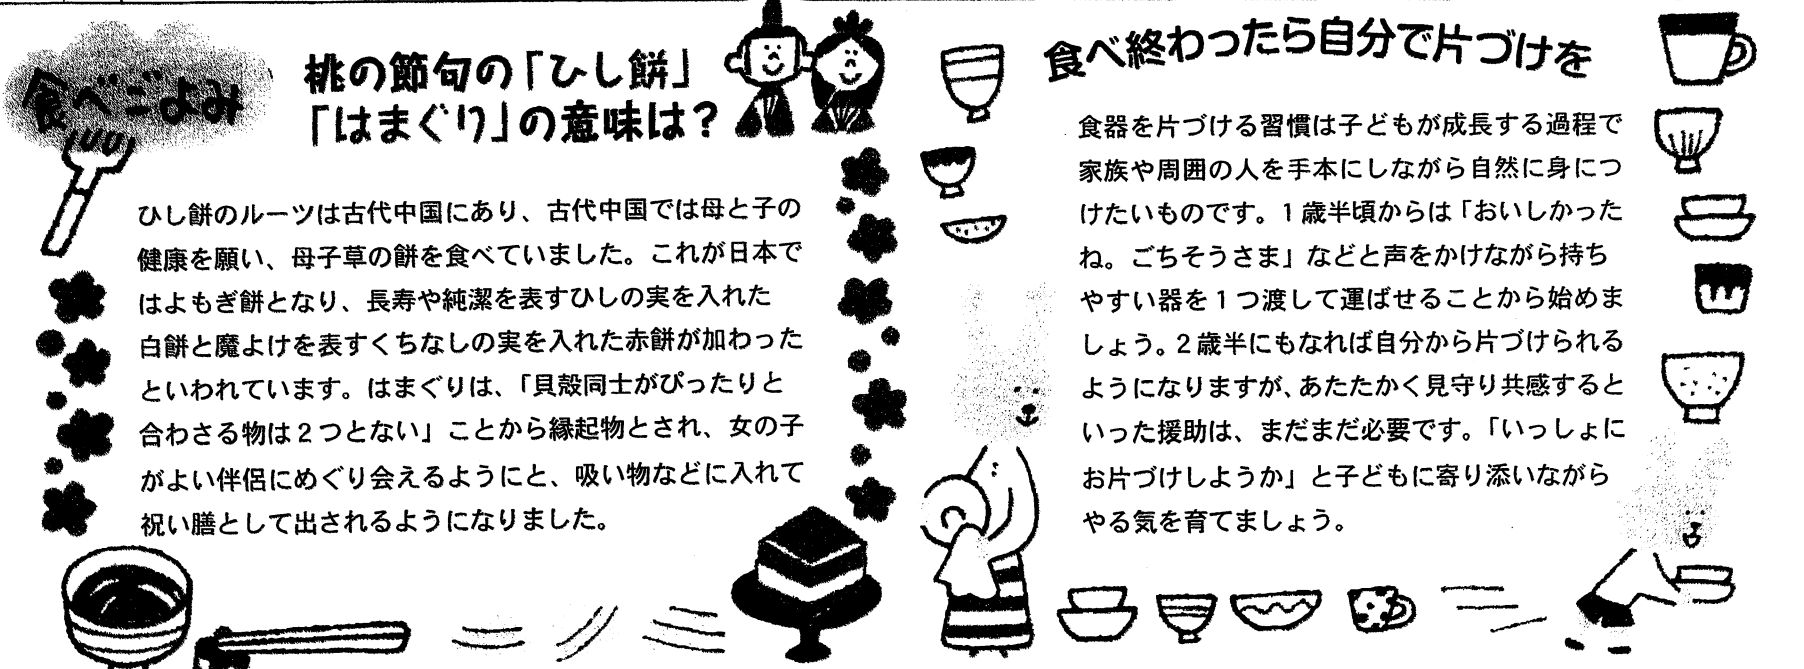 食べごよみ
桃の節句の「ひし餅」
「はまぐり」の意味は？
ひし餅のルーツは古代中国にあり、古代中国では母と子の
健康を願い、母子草の餅を食べていました。これが日本で
はよもぎ餅となり、長寿や純潔を表すひしの実を入れた
白餅と魔よけを表すくちなしの実を入れた赤餅が加わった
といわれています。はまぐりは、「貝殻同士がぴったりと
合わさる物は2つとない」ことから縁起物とされ、女の子
がよい伴侶にめぐり会えるようにと、吸い物などに入れて
祝い膳として出されるようになりました。
食べ終わったら自分で片づけを
食器を片づける習慣は子どもが成長する過程で
家族や周囲の人を手本にしながら自然に身につ
けたいものです。1歳半頃からは「おいしかった
ね。ごちそうさま」などと声をかけながら持ち
やすい器を1つ渡して運ばせることから始めま
しょう。2歳半にもなれば自分から片づけられる
ようになりますが、あたたかく見守り共感すると
いった援助は、まだまだ必要です。「いっしょに
お片づけしようか」と子どもに寄り添いながら
やる気を育てましょう。